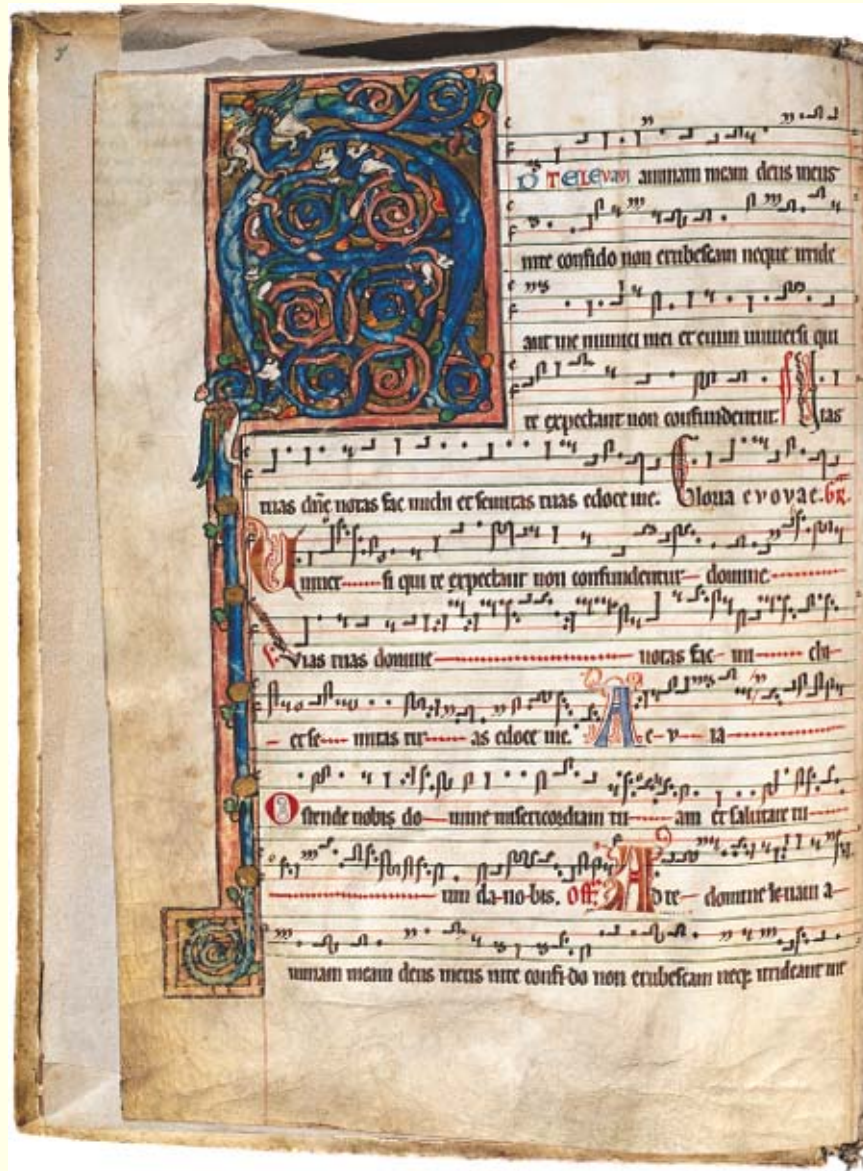 AD TE LEVAVI animam meam deus meus
in te confido non erubescam neque irride
ant me inimici mei et enim universi qui
te expectant non confundentur. ps Vias
tuas dne notas fac michi et semitas tuas edoce me. Gloria e v o v a e. GR.
Univer si qui te expectant non confundentur domine
V. Vias tuas domine notas fac mi chi
et se mitas tu as edoce me. A e v ia
Ostende nobis do mine misericordiam tu am et salutare tu
um da no bis. Off. Ad te domine levavi a
nimam meam deus meus in te confi do non erubescam neq irrideant me